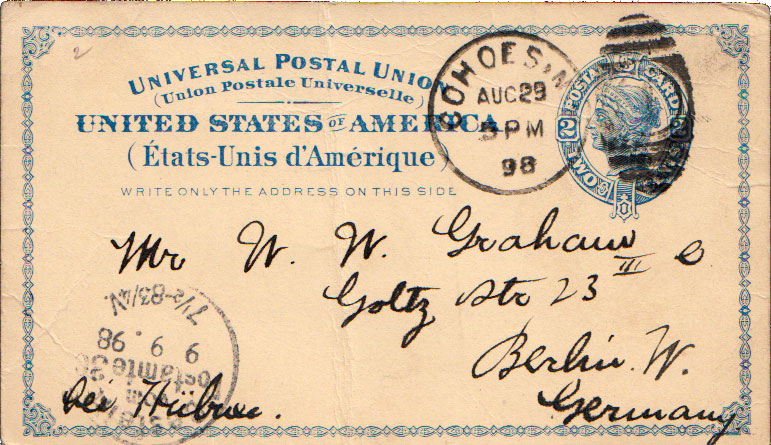 2
UNIVERSAL POSTAL UNION
(Union Postale Universelle)
UNITED STATES OF AMERICA
(États-Unis d'Amérique)
WRITE ONLY THE ADDRESS ON THIS SIDE
COHOES N
AUG 29
5 PM
98
POSTAL CARD
2 TWO
Mr W. W. Graham
Goltz Str 23 III
Berlin W.
Germany
bei
7½-8¾V.
9 9. 98
Postamte